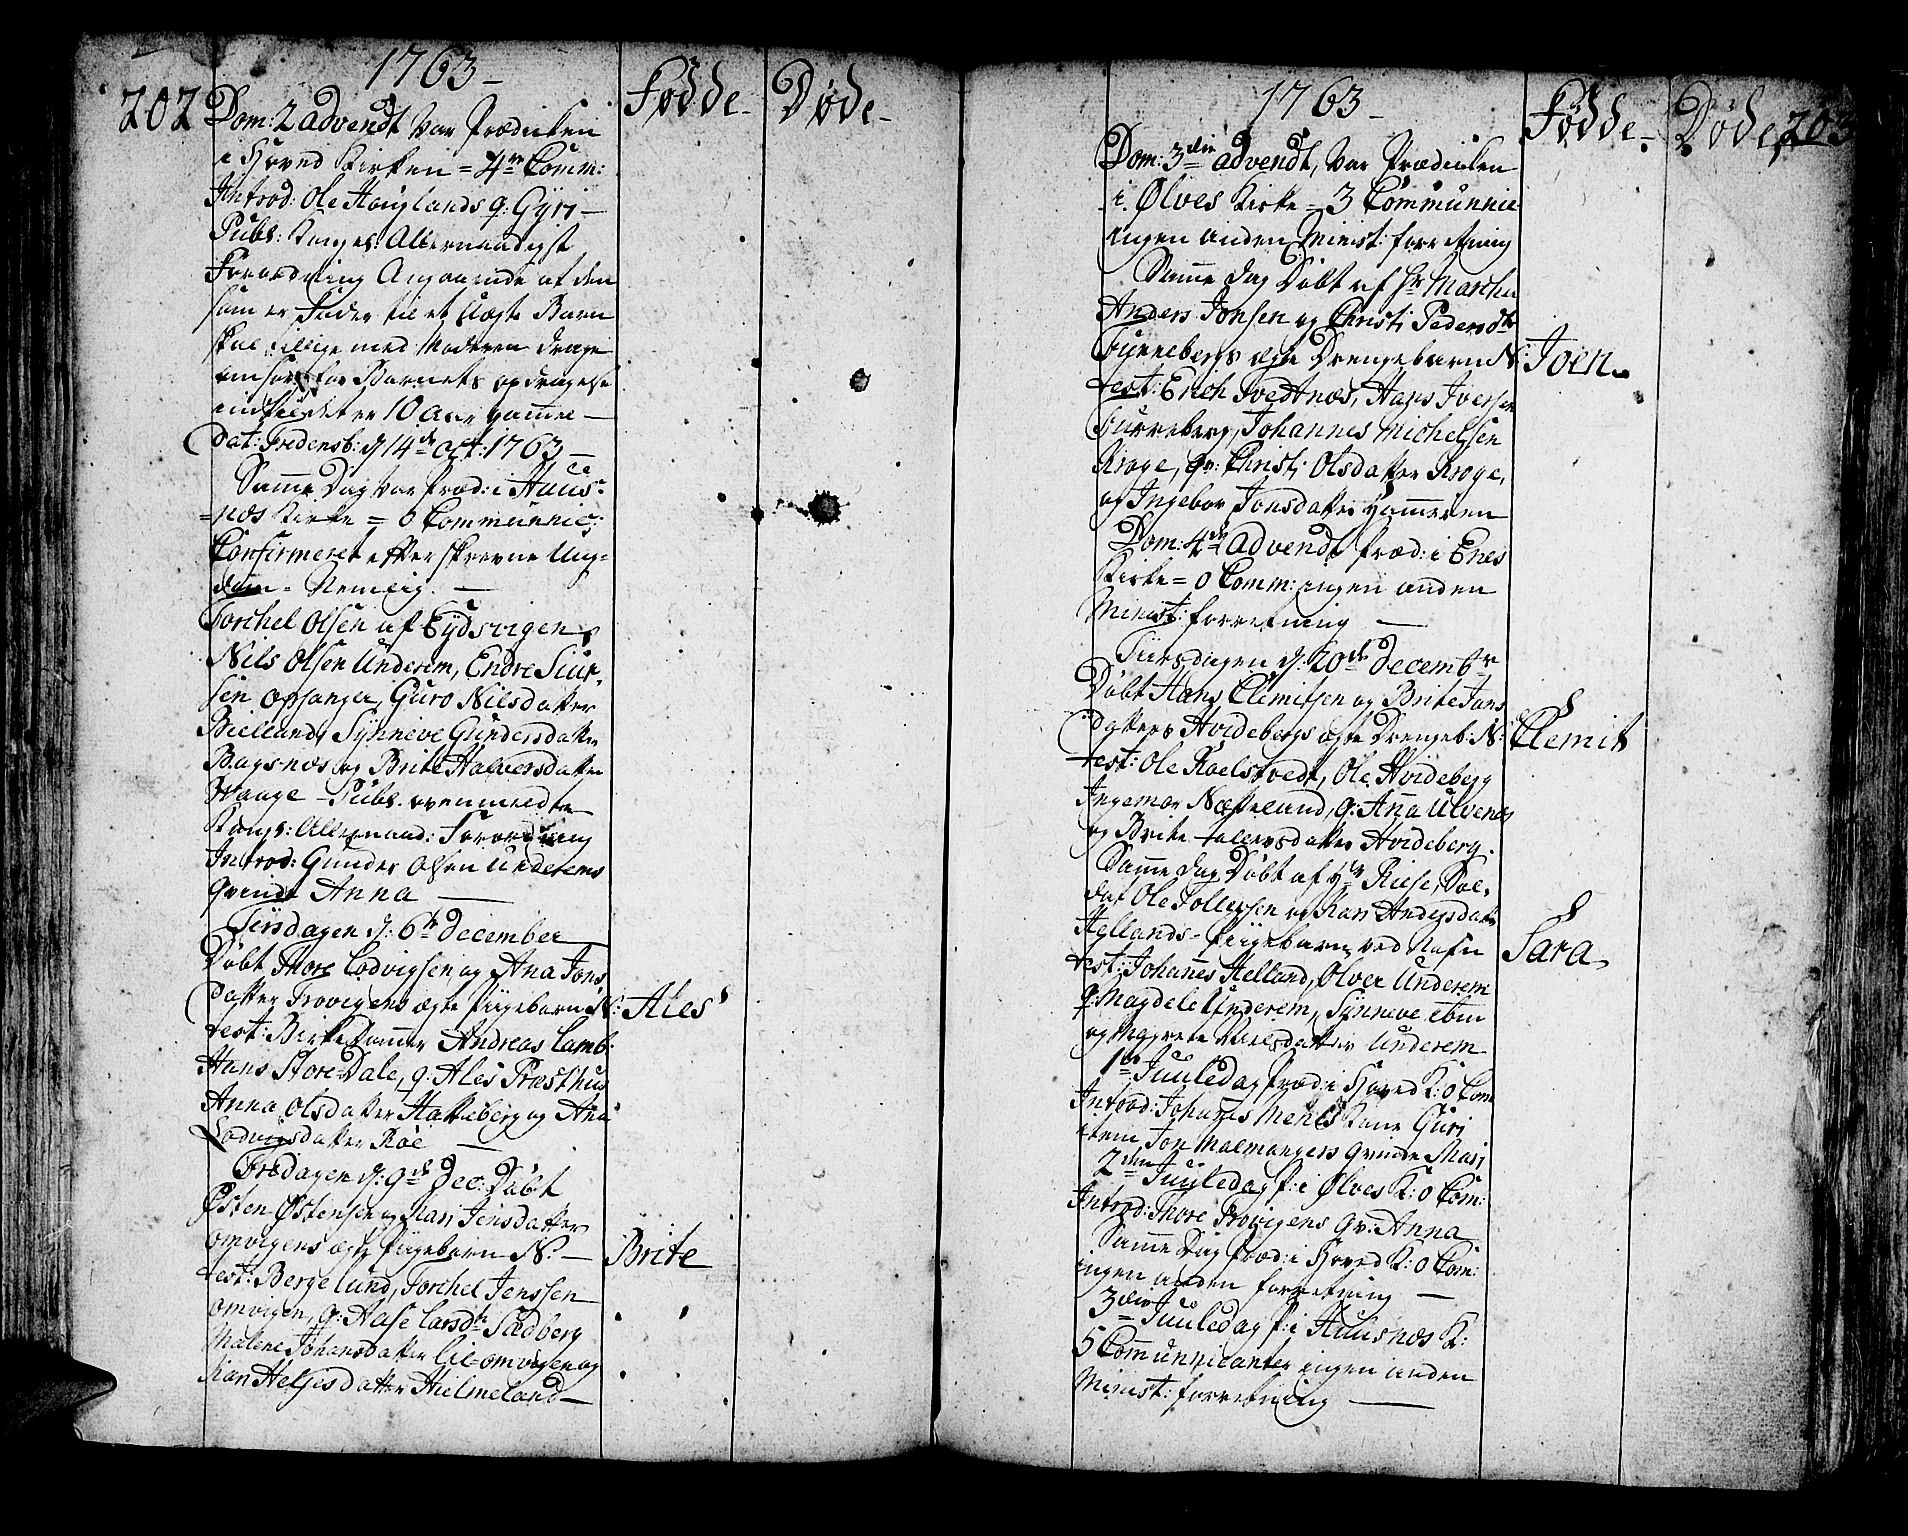 202
1763
Fødde
Døde
Dom: 2 advendt Var Prædiken
i Hoved Kirken = 4re Comm:
Introd: Ole Houglands q: Gyri
Publ: Konges: Allernaadigst
Forordning Angaaende at den
som er Fader til et Uægte Barn
skal tillige med Moderen drage
omsorg for Barnets opdragelse
indtil det er 10 aar gammel
Dat: Fredensb: d 14de oct: 1763
Samme Dag Var Præd: i Huus-
næs Kirke = 6 Communnic:
Confirmeret efterskrevne Ung-
dom - Nemlig.
Torchel Olsen af Eydsvigen
Nils Olsen Underem, Endre Siur-
sen Opsanger, Guro Nilsdatter
Bielland, Synneve Gundersdatter
Bagsnæs og Brite Halversdatter
Waage - Publ. ovenmeldte
Kongs: Allernaad: Forordning
Introd: Gunder Olsen Underems
qvinde Anna
Tirsdagen d. 6te December
Døbt Thore Lodvigsen og Ana Jons
datter Trovigens ægte Piigebarn N:
Ales
test: Birkedommer Andreas Lamb:
Hans Store-Dale, q: Ales Præsthus
Anna Olsdatter Hatteberg og Ana
Lodvigsdatter Røe
Fredagen d: 9de Dec: Døbt
Østen Østensen og Mari Jensdatter
omvigens ægte Piigebarn N:
Brite
test: Berge Lund, Torchel Jenssen
omvigen, q: Aase Larsdtr Sadberg
Malene Johansdatter Lil-omvigen og
Kari Helgesdatter Hielmeland
1763
Fødde
Døde
203
Dom: 3die advendt, Var Prædiken
i Ølves Kirke = 3 Communnic
ingen anden Minist: forretning
Samme dag Døbt af Hr Marthin
Anders Jonsen og Christi Pedersdtr
ægte Drengebarn N:
Joen
test: Erich Tvedtnæs, Hans Iversen
Johannes Michelsen
Kroge, qv: Christi Olsdatter Kroge,
og Ingebor Jonsdatter Hammeren
Dom: 4de Advendt Præd: i Enes
Kirke = 0 Comm: ingen anden
Minist: forretning
Tiirsdagen d. 20de Decembr
Døbt Hans Clemitsen og Brite Jans
datters Hvidebergs ægte Drengeb: N:
Clemit
test: Ole Kaelstvedt, Ole Hvideberg
Ingemar Nætteland, q: Anna Ulvenes
og Brite datter Hvideberg.
Samme dag Døbt af Hr Riese, Sol-
dat Ole Tollefsen og Kari Andersdatter
Hellands - Piigebarn ved Nafn
Sara
test: Johanes Helland, Olver Underem
q: Magdele Underem, Synneve ibm
og Margrete Nielsdatter Underem
1ste Juuledag Præd: i Hoved K: 0 Com
Introd: Johanes Menes Kone Guri
item Jon Malmangers qvinde Mari
2den Juuledag P: i Ølves K: 0 Com:
Introd: Thore Trovigens qv: Anna
Samme Dag Præd: i Hoved K: 0 Com:
ingen anden forretning
3die Juuledag P: i Huusnæs K:
5 Communnicanter ingen anden
Minist: forretning